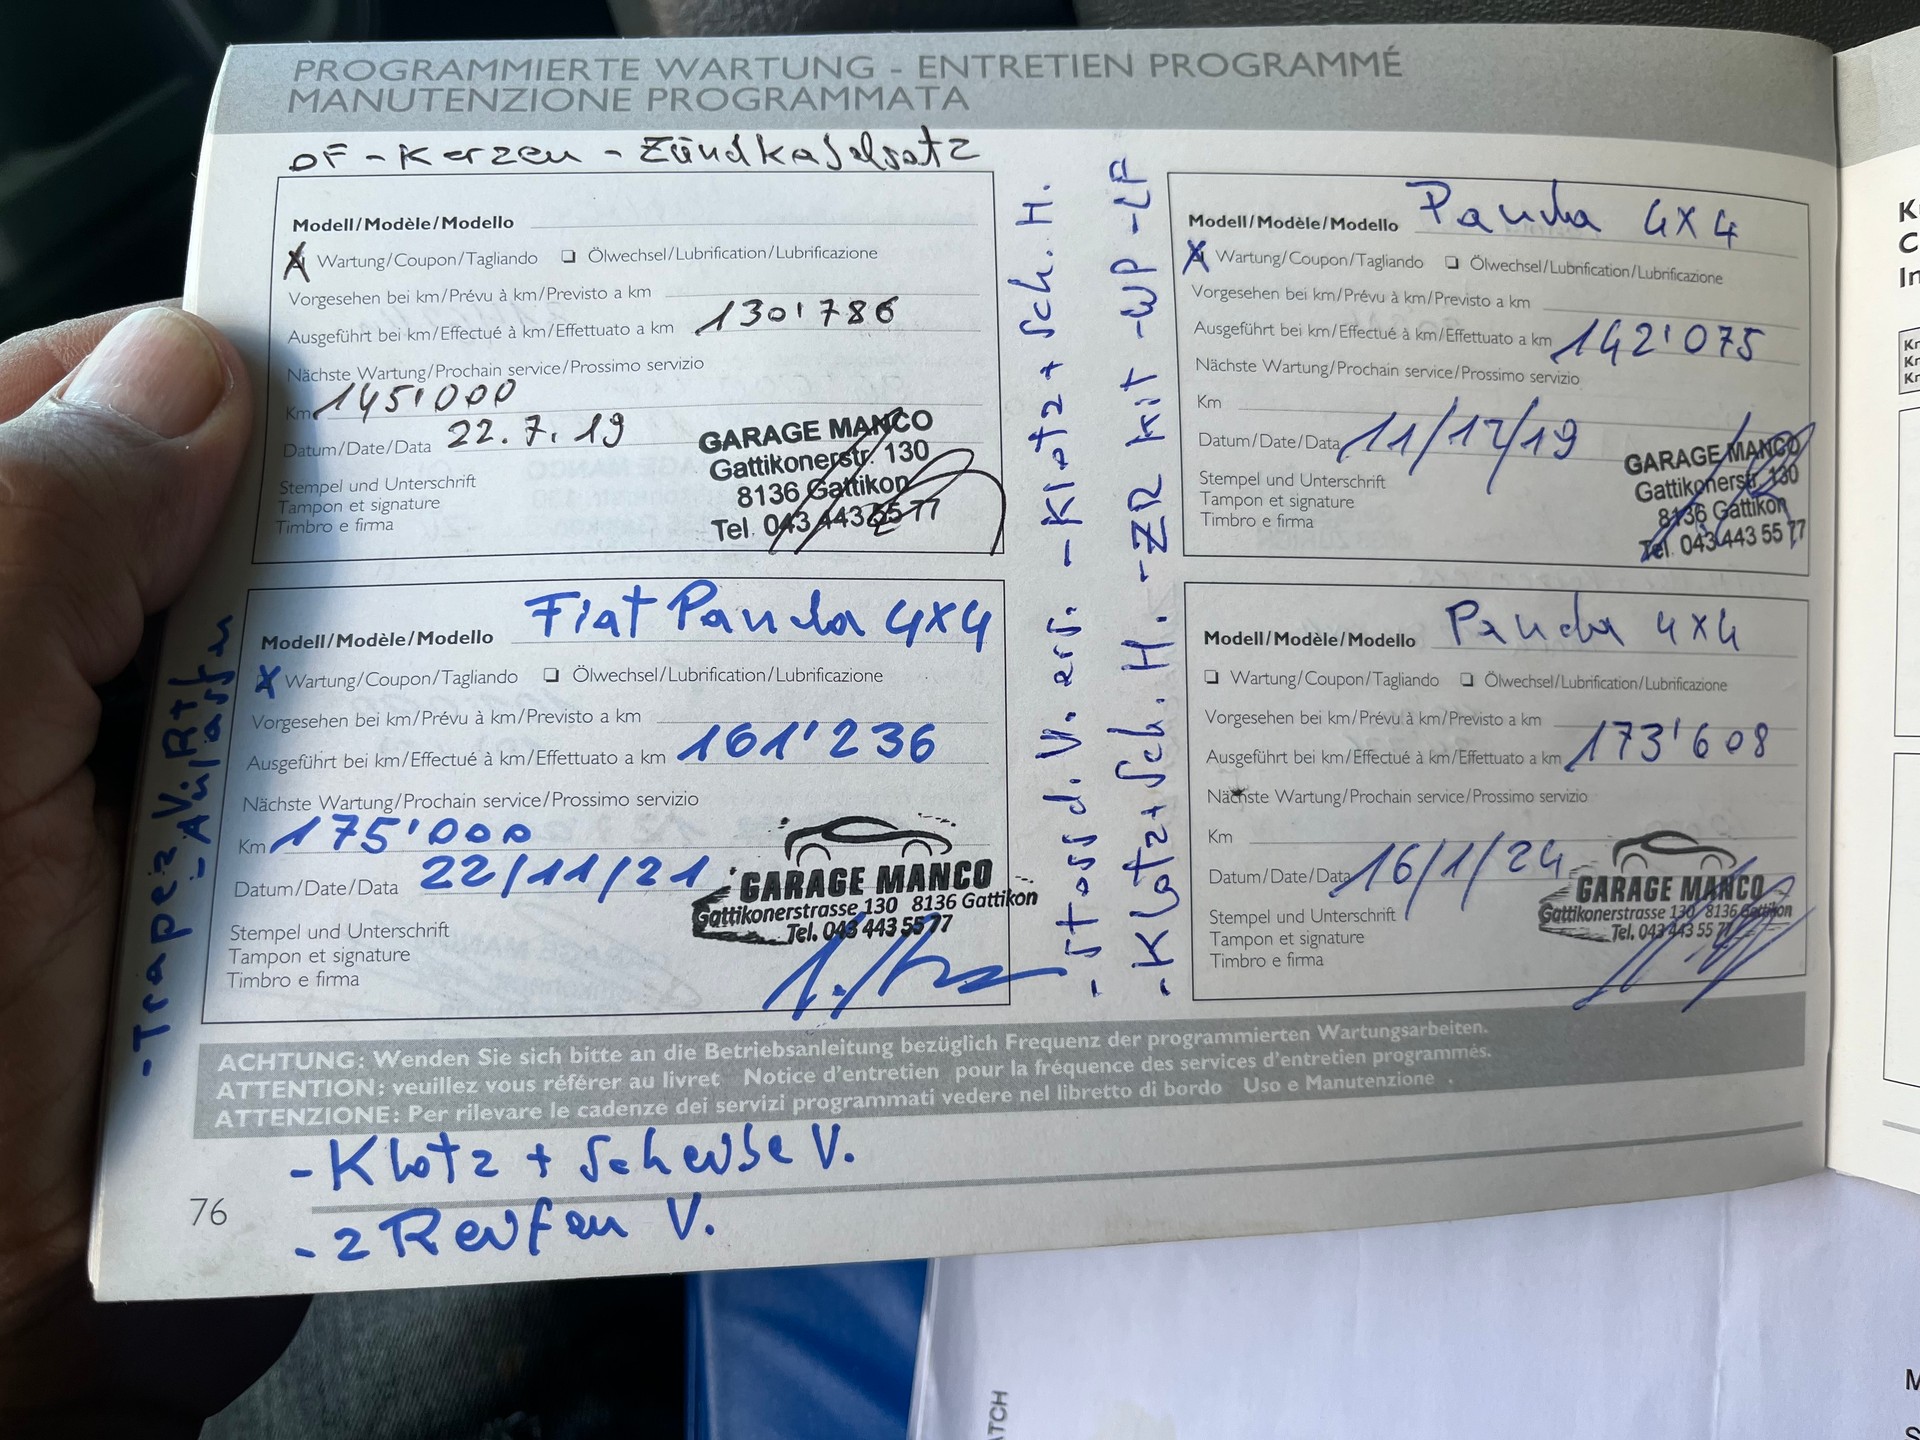 PROGRAMMIERTE WARTUNG - ENTRETIEN PROGRAMMÉ
MANUTENZIONE PROGRAMMATA
OF - Kerzen - Zündkabelsatz
Modell/Modèle/Modello
X Wartung/Coupon/Tagliando ❑ Ölwechsel/Lubrification/Lubrificazione
Vorgesehen bei km/Prévu à km/Previsto a km
Ausgeführt bei km/Effectué à km/Effettuato a km 130'786
Nächste Wartung/Prochain service/Prossimo servizio
Km 145'000
Datum/Date/Data 22.7.19
Stempel und Unterschrift
Tampon et signature
Timbro e firma
GARAGE MANCO
Gattikonerstr. 130
8136 Gattikon
Tel. 043 443 55 77
Modell/Modèle/Modello Panda 4x4
X Wartung/Coupon/Tagliando ❑ Ölwechsel/Lubrification/Lubrificazione
Vorgesehen bei km/Prévu à km/Previsto a km
Ausgeführt bei km/Effectué à km/Effettuato a km 142'075
Nächste Wartung/Prochain service/Prossimo servizio
Km
Datum/Date/Data 11/12/19
Stempel und Unterschrift
Tampon et signature
Timbro e firma
GARAGE MANCO
Gattikonerstr. 130
8136 Gattikon
Tel. 043 443 55 77
- Stossd. V. ers. - Klotz + Sch. H.
- Klotz + Sch. H. - ZR Kit - WP - LF
Modell/Modèle/Modello Fiat Panda 4x4
X Wartung/Coupon/Tagliando ❑ Ölwechsel/Lubrification/Lubrificazione
Vorgesehen bei km/Prévu à km/Previsto a km
Ausgeführt bei km/Effectué à km/Effettuato a km 161'236
Nächste Wartung/Prochain service/Prossimo servizio
Km 175'000
Datum/Date/Data 22/11/21
Stempel und Unterschrift
Tampon et signature
Timbro e firma
GARAGE MANCO
Gattikonerstrasse 130 8136 Gattikon
Tel. 043 443 55 77
- Trapez V. R+L
- Anlasser
Modell/Modèle/Modello Panda 4x4
❑ Wartung/Coupon/Tagliando ❑ Ölwechsel/Lubrification/Lubrificazione
Vorgesehen bei km/Prévu à km/Previsto a km
Ausgeführt bei km/Effectué à km/Effettuato a km 173'608
Nächste Wartung/Prochain service/Prossimo servizio
Km
Datum/Date/Data 16/1/24
Stempel und Unterschrift
Tampon et signature
Timbro e firma
GARAGE MANCO
Gattikonerstrasse 130 8136 Gattikon
Tel. 043 443 55 77
ACHTUNG: Wenden Sie sich bitte an die Betriebsanleitung bezüglich Frequenz der programmierten Wartungsarbeiten.
ATTENTION: veuillez vous référer au livret Notice d'entretien pour la fréquence des services d'entretien programmés.
ATTENZIONE: Per rilevare le cadenze dei servizi programmati vedere nel libretto di bordo Uso e Manutenzione .
- Klotz + Scheibe V.
- 2 Reifen V.
76